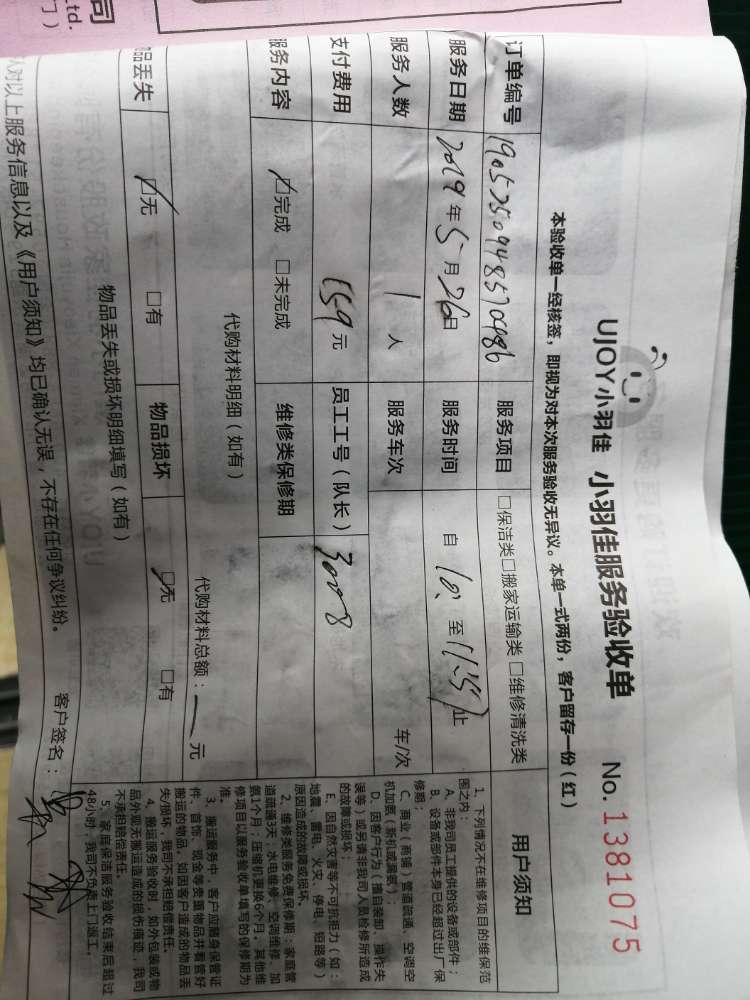 司
Ltd.
UJOY小羽佳 小羽佳服务验收单 No. 1381075
本验收单一经核签，即视为对本次服务验收无异议。本单一式两份，客户留存一份（红）
订单编号 服务项目 □保洁类□搬家运输类 □维修清洗类
服务日期 2019年5月26日 服务时间 自 10: 至 11:55 止
服务人数 1 人 服务车次 车/次
支付费用 159 元 员工工号（队长） 30008
服务内容 ☑完成 □未完成 维修类保修期
代购材料明细（如有）
代购材料总额：— 元
品丢失 ☑无 □有 物品损坏 ☑无 □有
物品丢失或损坏明细填写（如有）
认对以上服务信息以及《用户须知》均已确认无误，不存在任何争议纠纷。 客户签名：
用户须知
1、下列情况不在维修项目的维保范
围之内：
A、非我司员工提供的设备或部件；
B、设备或部件本身已经超过出厂保
修期；
C、商业（商铺）管道疏通、空调空
机加氨（新机或漏氨）；
D、因客户行为（擅自装卸、操作失
误等）或另请非我司人员检修所造成
的故障或损坏；
E、因自然灾害等不可抗拒力（如：
地震、雷电、火灾、停电、短路等）
原因造成的故障或损坏。
2、维修类服务免费保修期：家庭管
道疏通3天；水电维修、空调维修、加
氨1个月；压缩机更换6个月。其他维
修项目以服务验收单填写的保修期为
准。
3、搬运服务中，客户应随身保管证
件、首饰、现金等贵重物品并看管好
搬运的物品，如因客户造成的物品丢
失/损坏，我司不承担赔偿责任。
4、搬运服务验收时，如外包装或物
品外观无搬运造成的损伤痕迹，我司
不承担赔偿责任。
5、家庭保洁服务验收结束后超过
48小时，我司不负责上门返工。